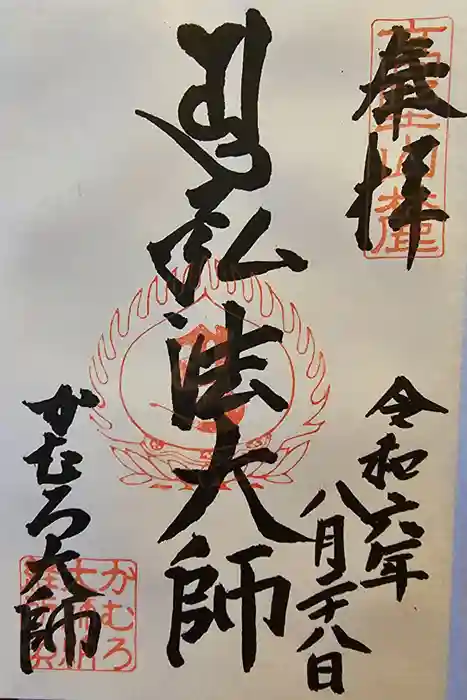 奉拝
高野山麓
令和六年
八月二十八日
弘法大師
かむろ大師
かむろ